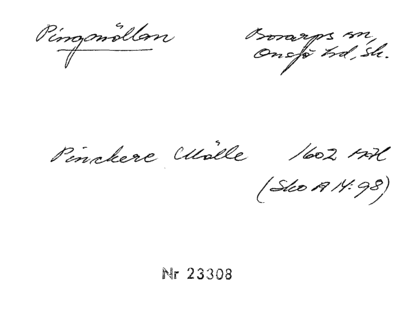 Pingmöllan
Bosarps sn,
Onsjö hd, Sk.
Pinckere Mölle 1602
(Sko A N: 98)
Nr 23308